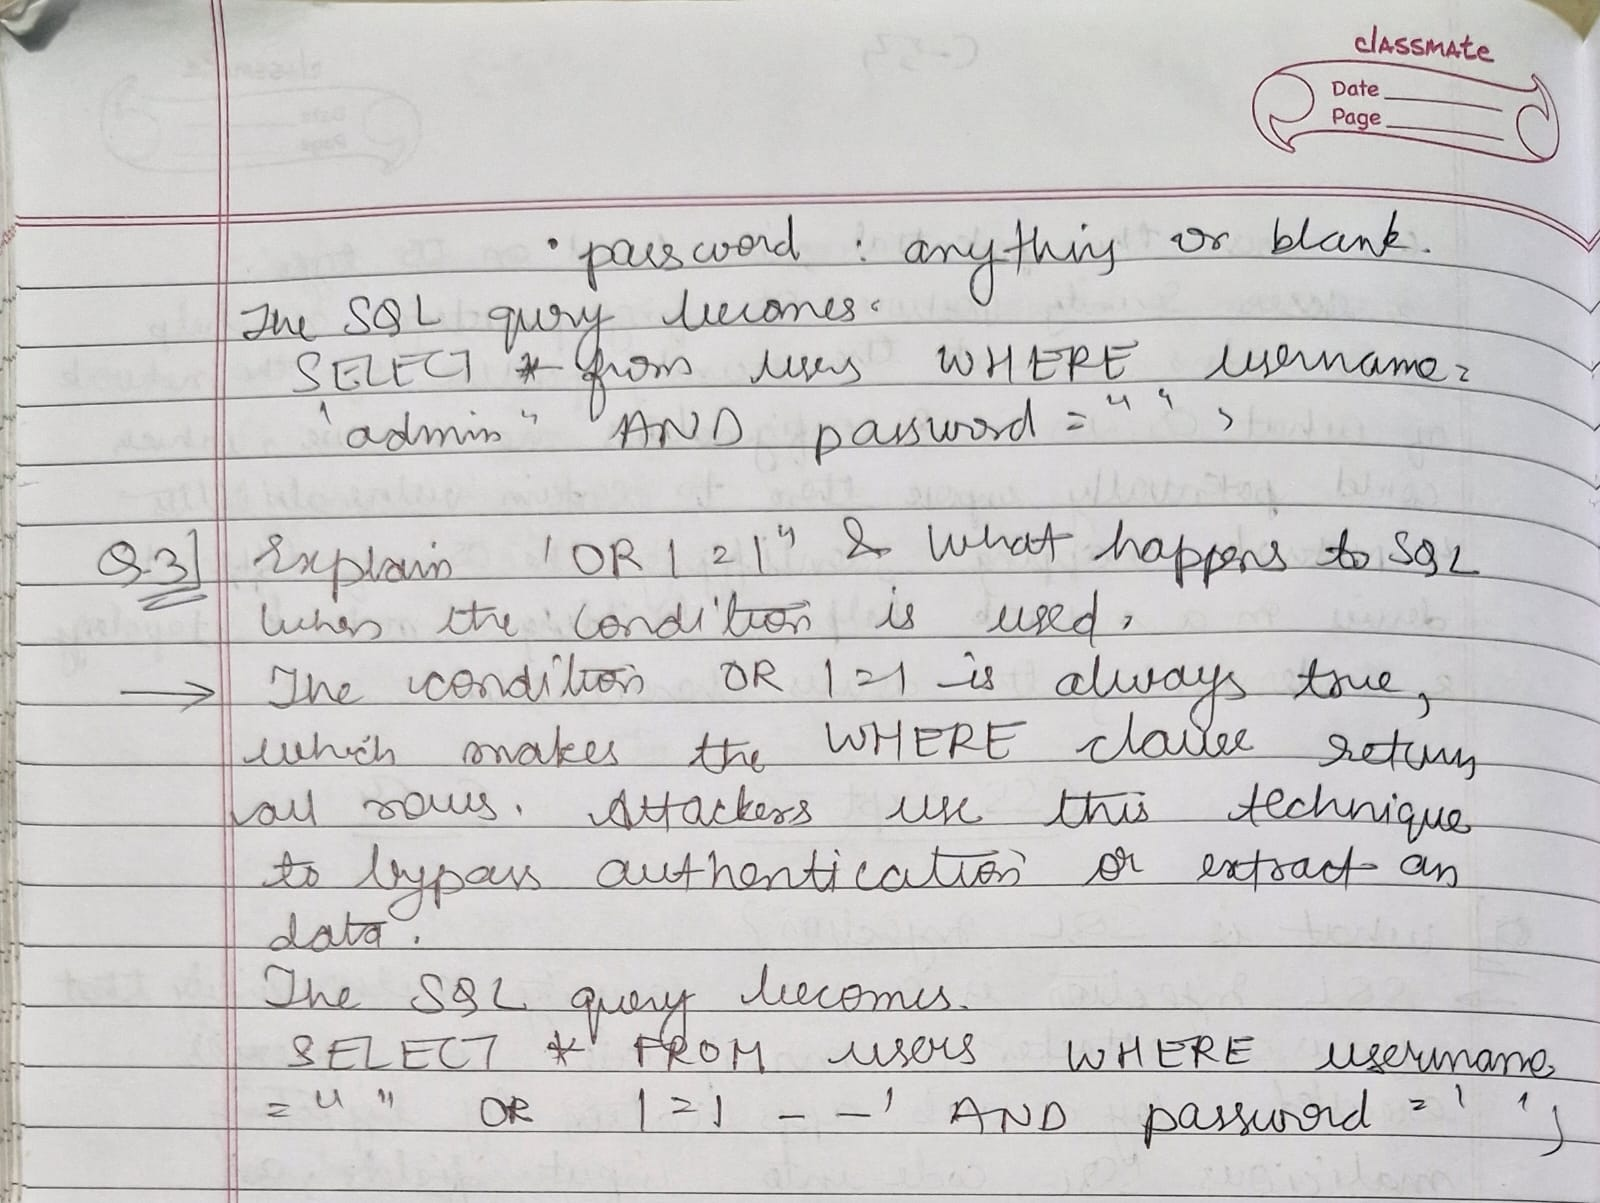 classmate
Date
Page
• password : anything or blank.
The SQL query becomes.
SELECT * from users WHERE username=
'admin" AND password = " " ;
Q.3] Explain 'OR 1=1" & what happens to SQL
when the condition is used.
→ The condition OR 1=1 is always true,
which makes the WHERE clause return
all rows. Attackers use this technique
to bypass authentication or extract an
data.
The SQL query becomes.
SELECT * FROM users WHERE username
= " " OR 1=1 - -' AND password = ' ' ;